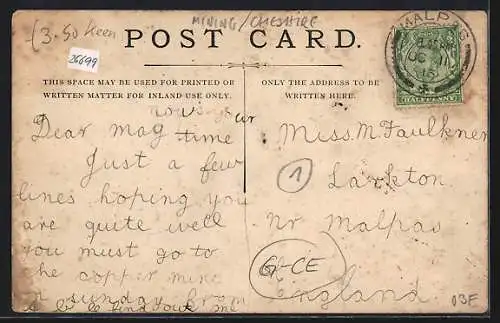 £3.50 Keen
MINING/CHESHIRE
26699
POST CARD.
MALPAS
OC 11
15
HALFPENNY
THIS SPACE MAY BE USED FOR PRINTED OR
WRITTEN MATTER FOR INLAND USE ONLY.
ONLY THE ADDRESS TO BE
WRITTEN HERE.
now is your
Dear mag time
Just a few
lines hoping you
are quite well
you must go to
the copper mine
on sunday from
find your
Miss. M. Faulkner
1
Larkton
nr Malpas
GP-CE
England
03E